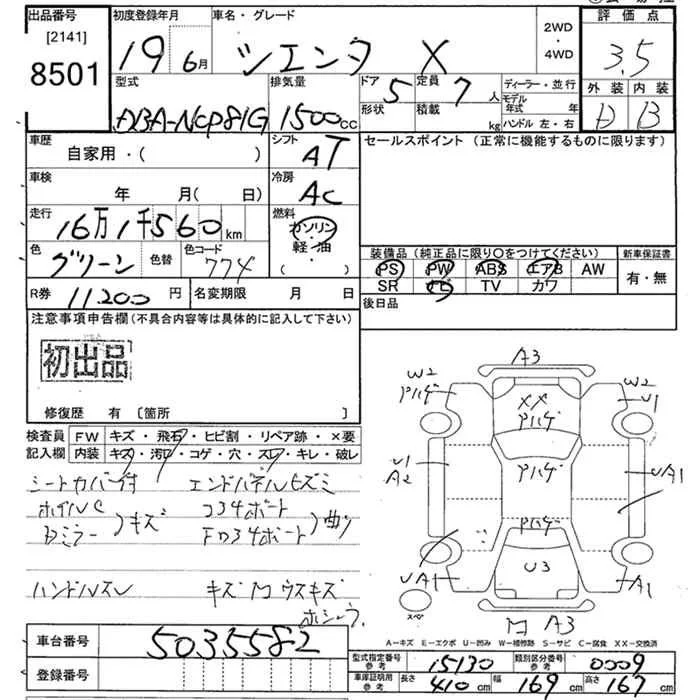 出品番号 初度登録年月 車名・グレード 2WD・4WD 評価点
[2141]
8501
19年 6月 シエンタ X 3.5
型式 排気量 ドア 5 定員 7人 ディーラー・並行 外装 内装
DBA-NCP81G 1500cc 形状 積載 kg モデル年式 年 ハンドル 左・右 D B
車歴 シフト セールスポイント (正常に機能するものに限ります)
自家用・( ) AT
車検 冷房
年 月(日) AC
走行 燃料
16万1千560km ガソリン・軽油・( )
色 色替 色コード 装備品 (純正品に限り○をつけてください) 新車保証書
グリーン 774 PS PW ABS エアB AW 有・無
SR ナビ TV カワ
R券 11200円 名変期限 月 日 後日品
注意事項申告欄 (不具合内容等は具体的に記入して下さい)
初出品
修復歴 有 [箇所 ]
検査員記入欄 FW キズ・飛石・ヒビ割・リペア跡・×要
内装 キズ・汚れ・コゲ・穴・スレ・キレ・破レ
シートカバー付 エンドパネルヒズミ
ホイルC コ34ボート
Dミラー キズ FD34ボート 曲り
ハンドルスレ キズ ウスキズ
A3
W2 W2
Pハゲ XX U1
Pハゲ
U1 Pハゲ UA1
A2
Pハゲ
U3
UA1 A1
スペア
A3
A-キズ E-エクボ U-凹み W-補修跡 S-サビ C-腐食 XX-交換済
車台番号 5035582
登録番号
型式指定番号参考 15130 類別区分番号参考 0009
車庫証明用参考 長さ 410cm 幅 169cm 高さ 167cm